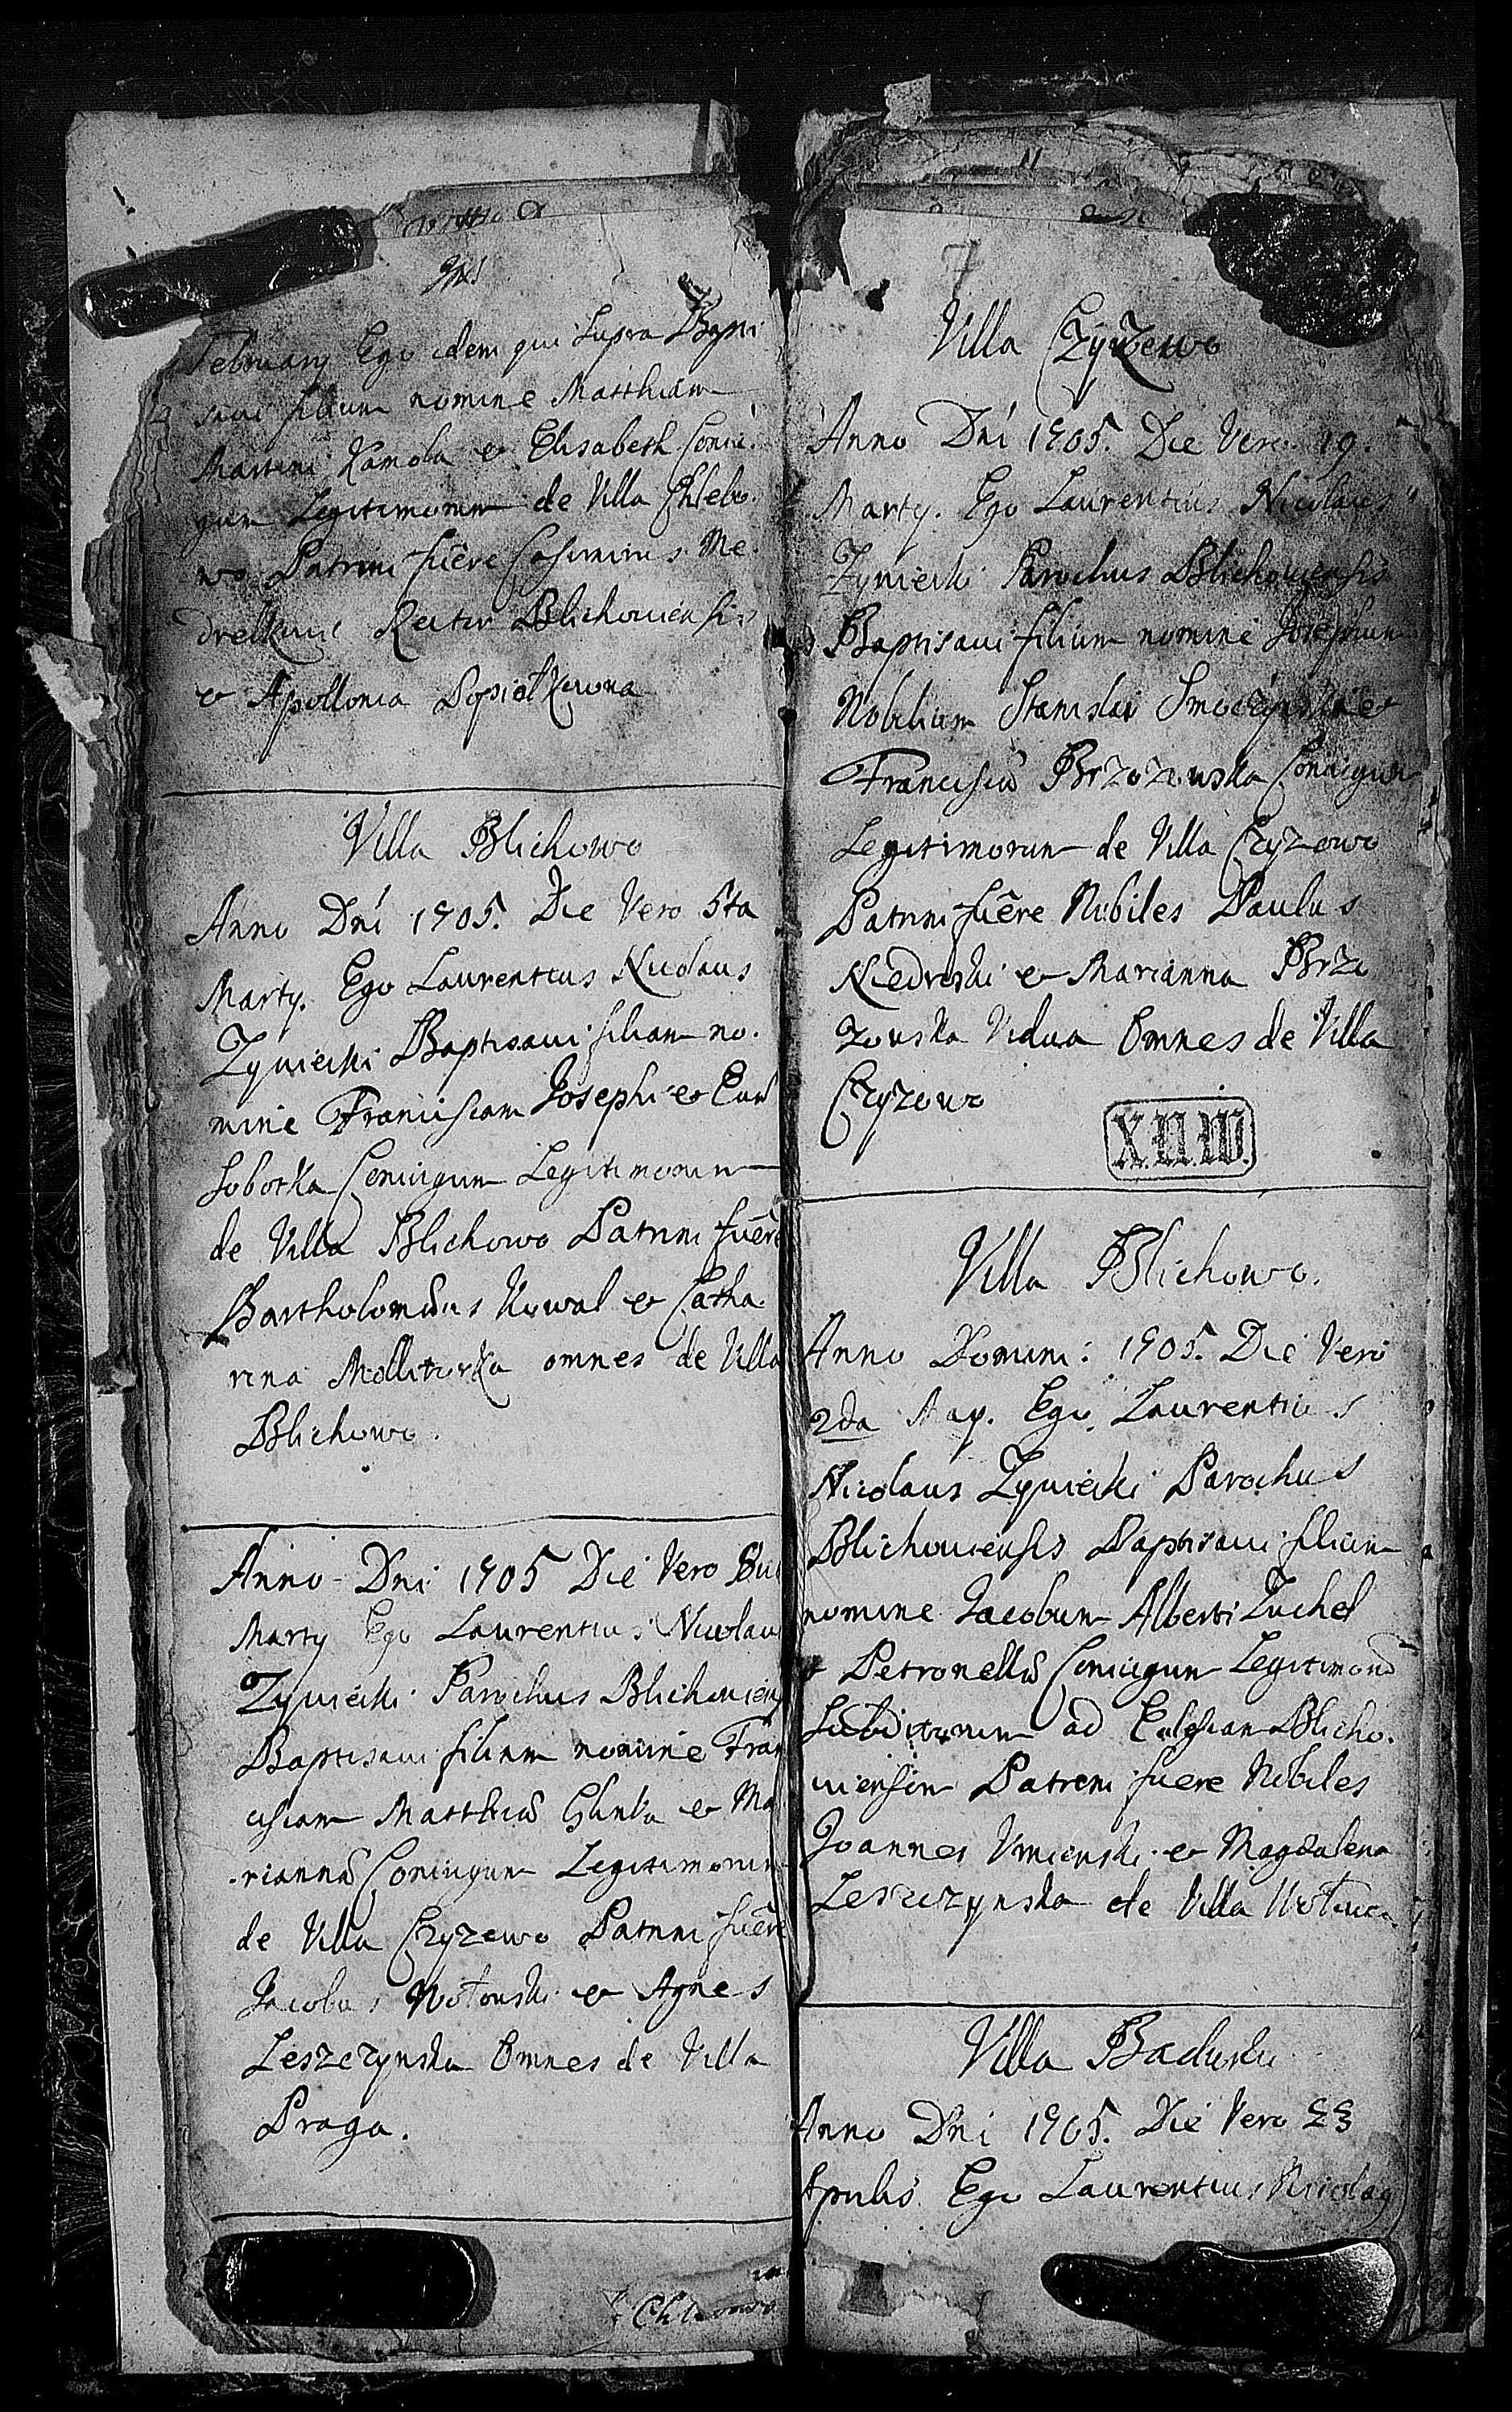 February Ego idem qui supra Bapti
savi filium nomine Matthiam
Martini Kamola et Elisabeth Coniu
gum Legitimorum de Villa Chlebo
wo Patrini fuere Casimirus Me
Rector Blichoviensis
et Apollonia Popiołkowna
Villa Blichowo
Anno Dni 1705. Die Vero 5ta
Marty. Ego Laurentius Nicolaus
Zyniecki Baptisavi filiam no.
mine Franciscam Josephi et Evæ
Sobotka Coniugum Legitimorum
de Villa Blichowo Patrini fuere
Bartholomæus Kowal et Catha
rina Mollitorka omnes de Villa
Blichowo.
Anno Dni 1705 Die Vero
Marty Ego Laurentius Nicolaus
Zyniecki Parochus Blichovien
Baptisavi filiam nomine Fran
ciscam Matthiæ Glinka et Ma
riannæ Coniugum Legitimorum
de Villa Czyzewo Patrini fuere
Jacobus Wotowski et Agnes
Leszczynska Omnes de Villa
Praga.
Chlebowo
11
7
Villa Czyzewo
Anno Dni 1705. Die Vero 19.
Marty. Ego Laurentius Nicolaus
Zyniecki Parochus Blichoviensis
Baptisavi filium nomine Josephum
Nobilium Stanislai Smoczynski et
Franciscæ Brzozowska Coniugum
Legitimorum de Villa Czyzewo
Patrini fuere Nobiles Paulus
Niedroski et Marianna Brzo
zowska Vidua Omnes de Villa
Czyzowo
X.II.IV.
Villa Blichowo.
Anno Domini: 1705. Die Vero
2da May. Ego Laurentius
Nicolaus Zyniecki Parochus
Blichoviensis Baptisavi filium
nomine Jacobum Alberti Zuchel
et Petronellæ Coniugum Legitimorum
Subditorum ad Eclesiam Blicho.
viensem Patrini fuere Nobiles
Joannes Umienski et Magdalena
Leszczynska de Villa
Villa
Anno Dni 1705. Die Vero 23
Aprilis Ego Laurentius Nicolaus